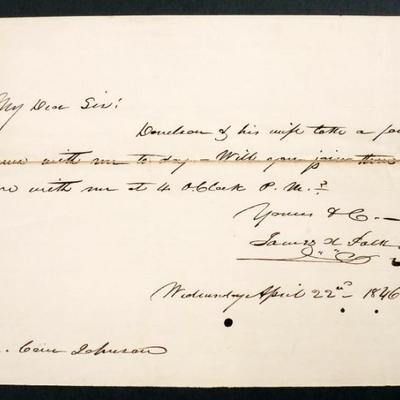 My Dear Sir!
Donelson & his wife take a
with me to day – Will you join them
with me at 4. O.Clock P. M.?
Yours &C. –
James K Polk
Wednesday April 22nd – 1846
Cave Johnson